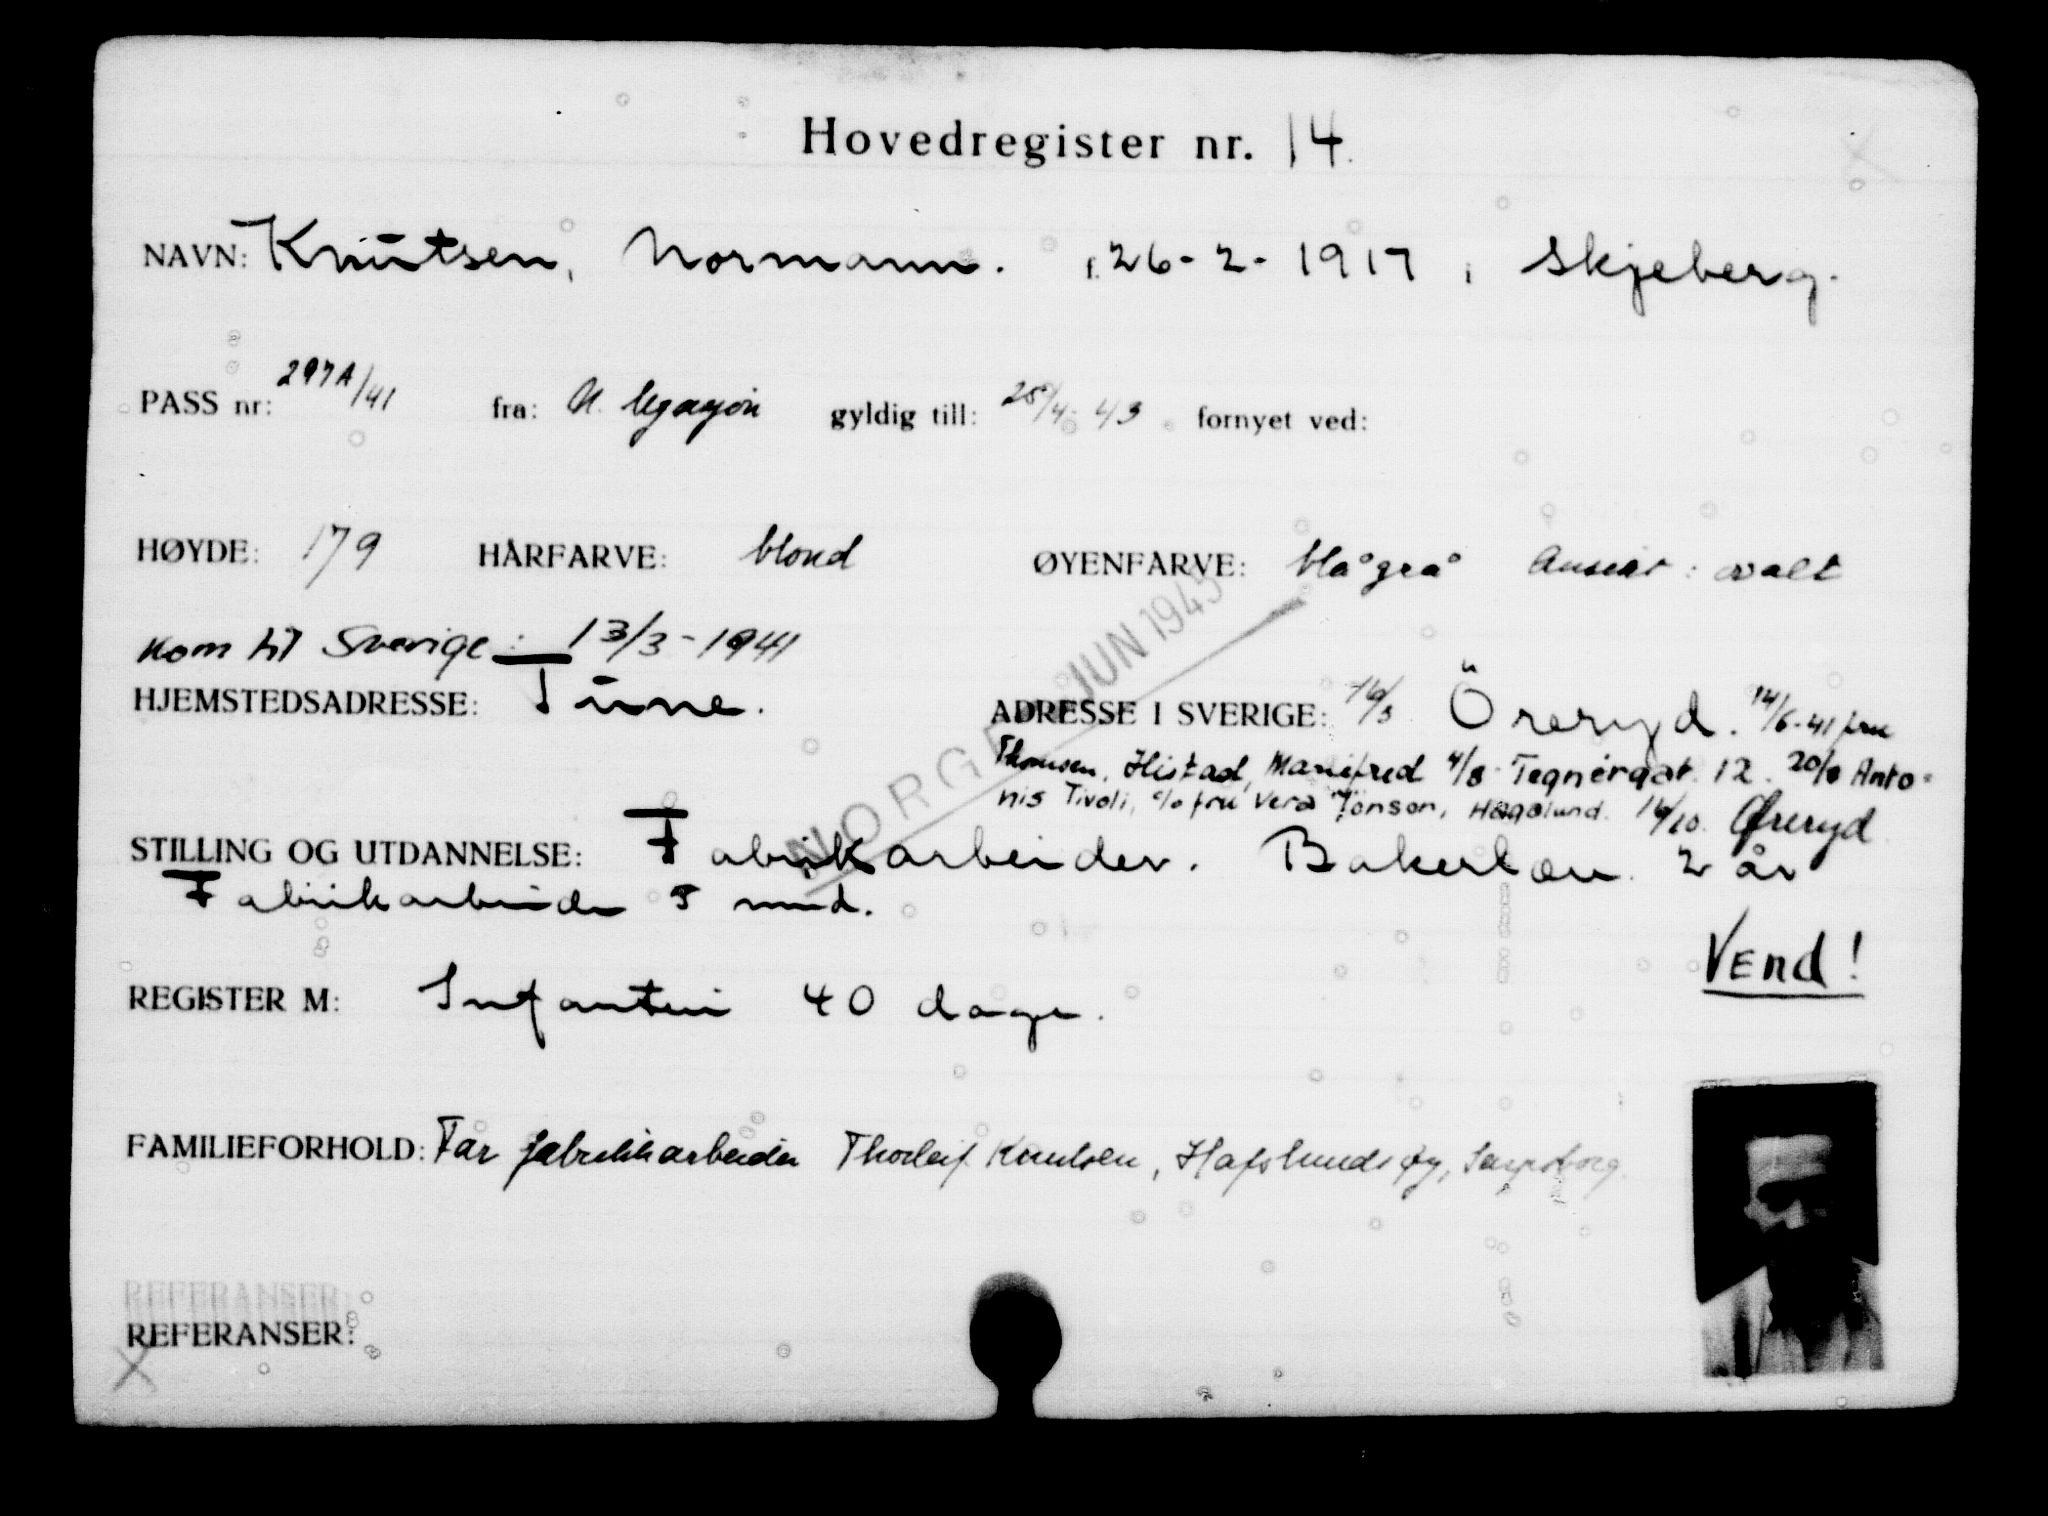 Hovedregister nr. 14.
NAVN: Knutsen, Normann. f. 26-2-1917 i Skjeberg.
PASS nr: 297A/41 fra: N. legasjon gyldig till: 25/4-43 fornyet ved:
HØYDE: 179 HÅRFARVE: blond ØYENFARVE: blågrå Ansikt: ovalt
Kom til Sverige: 13/3-1941
HJEMSTEDSADRESSE: Tune. ADRESSE I SVERIGE: 16/3 Öreryd. 14/6-41 fru
Thomsen, Histad, Mariefred 4/8 Tegnérgat. 12. 20/8 Anto-
nis Tivoli, c/o fru Vera Jonson, Hagalund. 16/10. Øreryd
NORGE JUN 1945
STILLING OG UTDANNELSE: Fabrikarbeider. Bakerlær. 2 år
Fabrikarbeider 5 mnd.
Vend!
REGISTER M: Infanteri 40 dage.
FAMILIEFORHOLD: Far fabrikkarbeider Thorleif Knutsen, Hafslundsøy, Sarpsborg.
REFERANSER:
REFERANSER: